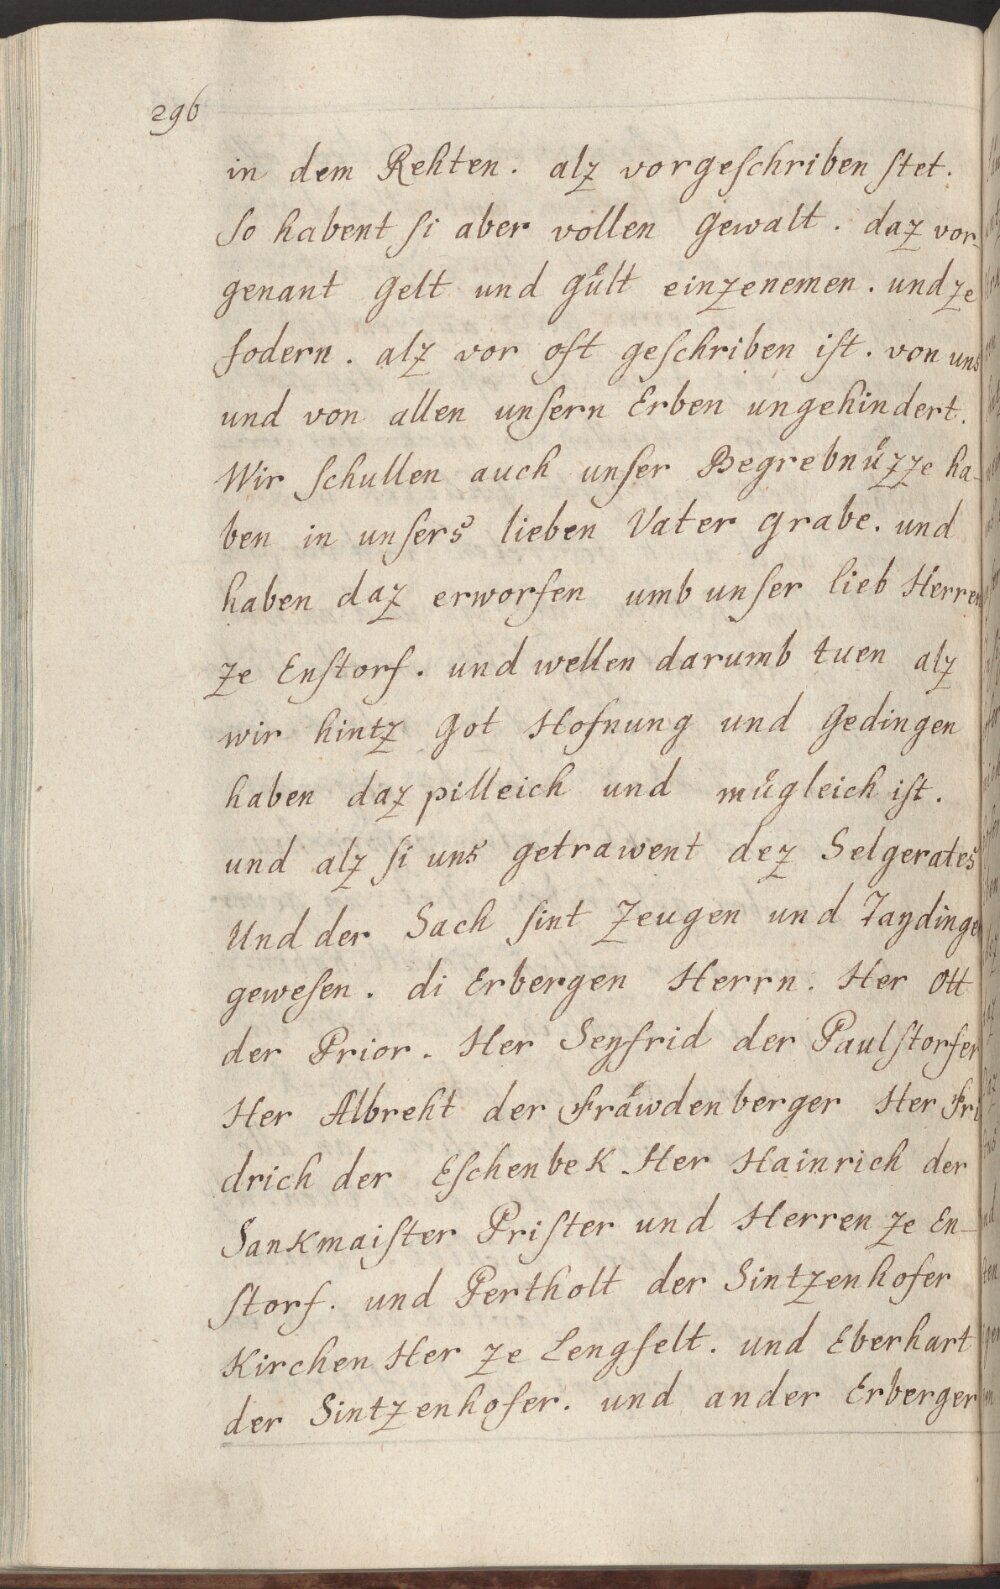 296
in dem Rehten. alz vorgeschriben stet.
so habent si aber vollen gewalt. daz vor-
genant gelt und guͤlt einzenemen. und ze
fodern. alz vor oft geschriben ist. von uns
und von allen unsern Erben ungehindert.
Wir schullen auch unser Begrebnuͤzze ha-
ben in unsers lieben Vater grabe. und
haben daz erworfen umb unser lieb Herren
ze Enstorf. und wellen darumb tuen alz
wir hintz Got Hofnung und Gedingen
haben daz pilleich und muͤgleich ist.
und alz si uns getrawent dez Selgerates
Und der Sach sint Zeugen und Taydinger
gewesen. di Erbergen Herrn. Her Ott
der Prior. Her Seyfrid der Paulstorfer
Her Albreht der Fraͤwdenberger Her Fri
drich der Eschenbek. Her Hainrich der
Sankmaister Prister und Herren ze En-
storf. und Pertholt der Sintzenhofer
Kirchen Her ze Lengfelt. und Eberhart
der Sintzenhofer. und ander Erberger